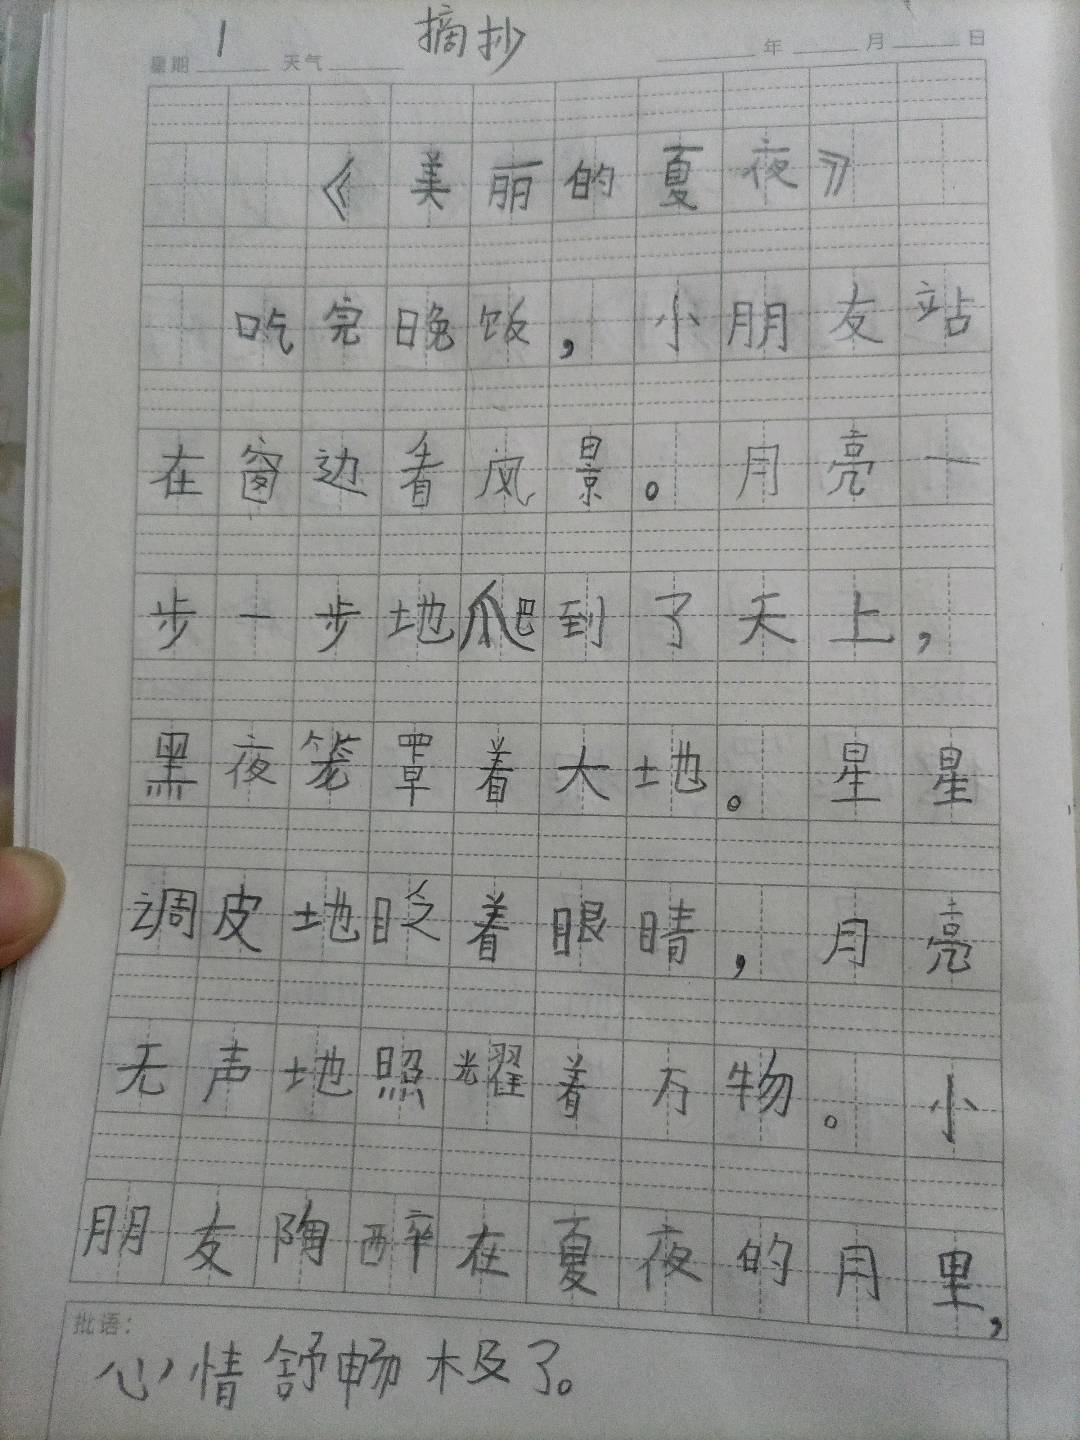 1 摘抄
星期 天气 年 月 日
《美丽的夏夜》
吃完晚饭,小朋友站
在窗边看风景。月亮一
步一步地爬到了天上,
黑夜笼罩着大地。星星
调皮地眨着眼睛,月亮
无声地照耀着万物。小
朋友陶醉在夏夜的月里,
批语:
心情舒畅极了。